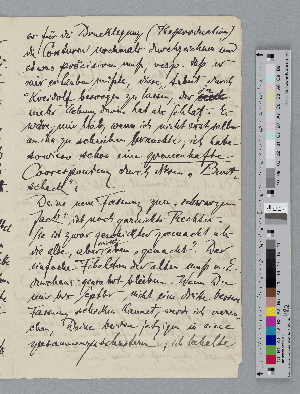 er für die Drucklegung (Reproduction)
die Conturen nochmals durchzusehen und
etwas präcisiren muß, resp. daß er
mir erlauben müßte, diese Arbeit durch
Kreidolf besorgen zu lassen, der
mehr Uebung darin hat als
wäre mir lieb, wenn ich nicht erst selbst
an ihn zu schreiben brauchte, ich habe
sowieso schon eine grauenhafte
Correspondenz durch diesen "Bunt-
scheck".
Deine neue Fassung zum "schwarzen
" ist noch garnichts Rechtes.
Sie ist zwar geschickter gemacht als
die alte, aber eben "gemacht". Der
einfache Fibelton der alten muß m. E.
durchaus gewahrt bleiben. Wenn Du
mir bis Septbr. nicht eine dritte bessere
Fassung schicken kannst, werde ich versu-
chen, Deine beiden jetzigen in eine
zusammenzuschustern; ich behalte